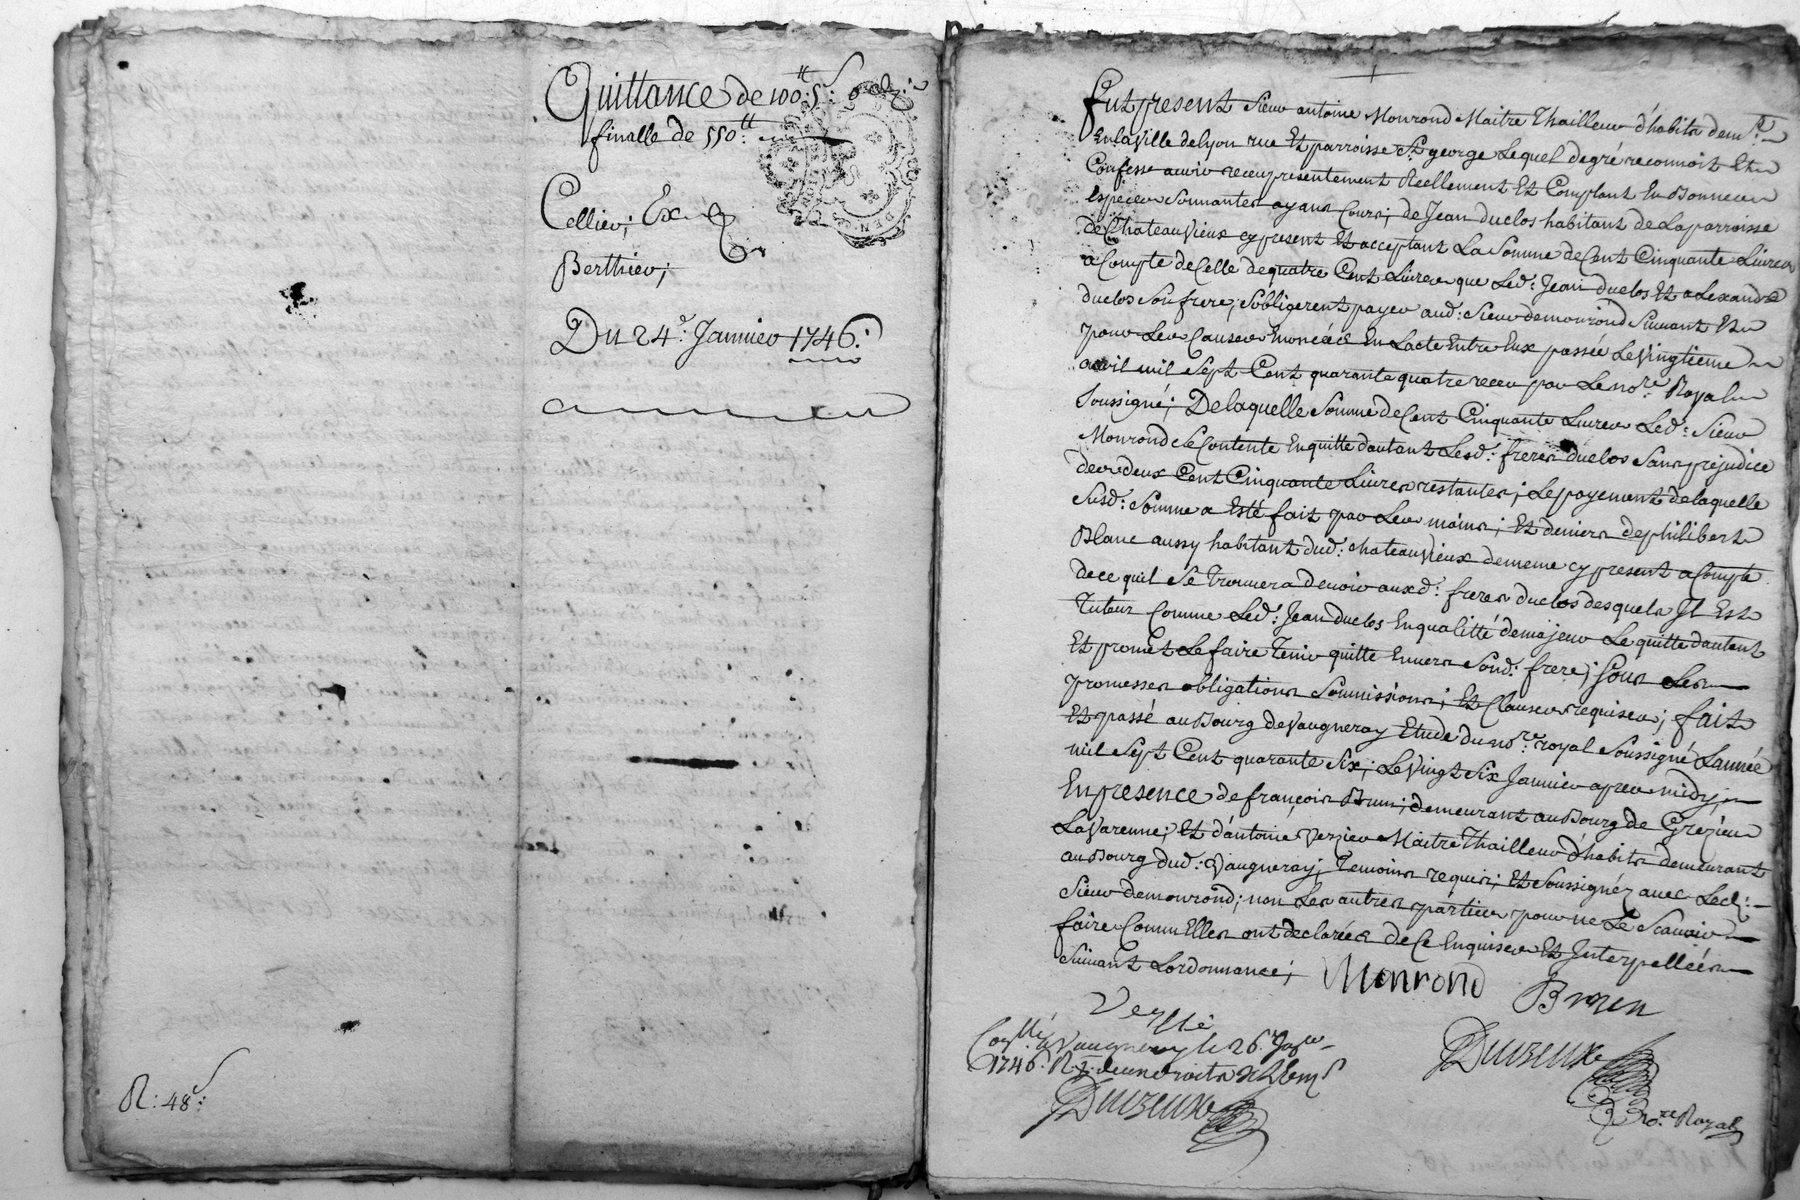 Quittance de 100ᵗᵗ 5ˢ
finalle de 550ᵗᵗ
Cellier; Ex
Berthier;
Du 24ᵉ. Janvier 1746.
R: 48ˢ:
Fut present Sieur antoine Monrond Maitre Thailleur d'habits demᵗ
En la Ville de lyon rue Et parroisse Sᵗ george Lequel de gré reconnoit Et
Confesse avoir receu presentement Reellement Et Comptant En Bonnes
Especes Sonnantes ayans Cours; de Jean duclos habitant de La parroisse
de Chateauvieux cy present Et acceptant La Somme de Cent Cinquante Livres
a Compte de Celle de quatre Cent Livres que Led: Jean duclos Et alexandre
duclos Son frere; Sobligerent payer aud: Sieur de monrond Suivant Et
pour Les Causes Enoncées En Lacte Entre Eux passée Le Vingtieme
avril mil Sept Cent quarante quatre receu par Le noʳᵉ Royal
Soussigné; De laquelle Somme de Cent Cinquante Livres Led: Sieur
Monrond Se Contente En quitte dautant Lesd: freres duclos Sans prejudice
des deux Cent Cinquante Livres restantes; Le payement de laquelle
Susd: Somme a Esté fait par Les mains; Et deniers de philibert
Blanc aussy habitant dud: chateauvieux de meme cy present a Compte
de ce quil Se trouvera devoir auxd: freres duclos desquels Jl Est
Tuteur Comme Led: Jean duclos En qualitté de majeur Le quitte dautant
Et promet Le faire Tenir quitte Envers Sond: frere; Sous Les
promesses obligations Soumissions; Et Clauses requises; fait
Et passé au Bourg de Vaugneray Etude du noʳᵉ royal Soussigné Lannée
mil Sept Cent quarante Six; Le Vingt Six Janvier apres midy;
En presence de françois Brun; demeurant au Bourg de Grezieu
La Varenne; Et d'antoine Verzier Maitre Thailleur d'habits demeurant
au Bourg dud: Vaugneray; Temoins requis; Et Soussignéz avec Led:
Sieur de monrond; non Les autres parties pour ne Le Scavoir
faire Comm Elles ont declarées de Ce Enquises Et Jnterpellées
Suivant Lordonnance;
Monrond
Brun
Conᵗˡˡé à Vaugneray le 26
1746. R.
Noʳᵉ Royal